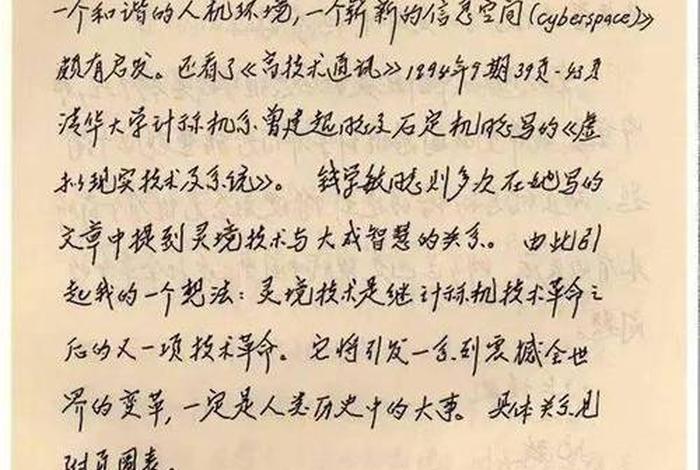 一个和谐的人机环境,一个崭新的信息空间(cyberspace)》
颇有启发。还看了《高技术通讯》1994年9期39页-43页
清华大学计祘机系曾建超同志及石定机同志写的《虚
拟现实技术及系统》。 钱学敏同志则多次在她写的
文章中提到灵境技术与大成智慧的关系。 由此引
起我的一个想法:灵境技术是继计祘机技术革命之
后的又一项技术革命。它将引发一系列震撼全世
界的变革,一定是人类历史中的大事。 具体关系见
附页图表。